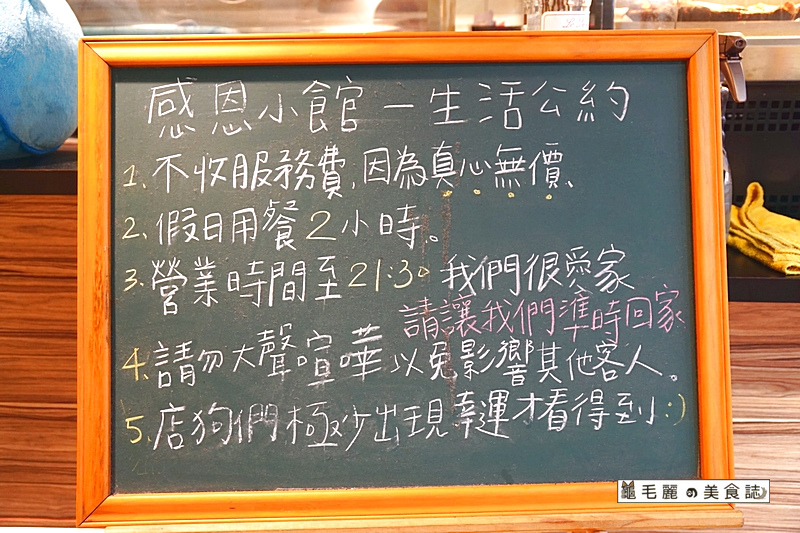 感恩小館－生活公約
1、不收服務費，因為真心無價、
2、假日用餐2小時。
3、營業時間至21:30 我們很愛家
請讓我們準時回家
4、請勿大聲喧嘩 以免影響其他客人。
5、店狗們極少出現 幸運才看得到:)
毛麗の美食誌